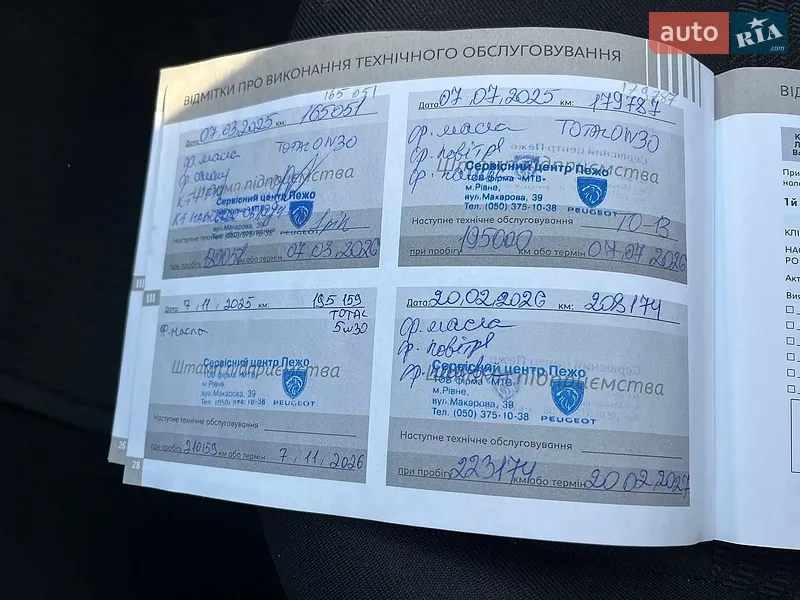 auto RIA .com
ВІДМІТКИ ПРО ВИКОНАННЯ ТЕХНІЧНОГО ОБСЛУГОВУВАННЯ
165 051
Дата: 07.03.2025 км: 165051
ф. масла TOTAL 0W30
Штамп підприємства
Сервісний центр Пежо
вул.Макарова, 39
Тел. (050) 375-10-38
PEUGEOT
Наступне технічне обслуговування
при пробігу км або термін 07 03 2026
179787
Дата: 07.07.2025 км: 179787
ф. масла TOTAL 0W30
ф. повітря
Штамп підприємства
Сервісний центр Пежо
ТОВ фірма «МТВ»
м.Рівне,
вул.Макарова, 39
Тел. (050) 375-10-38
PEUGEOT
Наступне технічне обслуговування ТО-В
при пробігу 195000 км або термін 07.07.2026
Дата: 7.11.2025 км: 195 159
TOTAL
5w30
ф. масла
Штамп підприємства
Сервісний центр Пежо
ТОВ фірма «МТВ»
м.Рівне,
вул.Макарова, 39
Тел. (050) 375-10-38
PEUGEOT
Наступне технічне обслуговування
при пробігу 210159 км або термін 7.11.2026
Дата: 20.02.2026 км: 208174
ф. масла
ф. повітря
Штамп підприємства
Сервісний центр Пежо
ТОВ фірма «МТВ»
м.Рівне,
вул.Макарова, 39
Тел. (050) 375-10-38
PEUGEOT
Наступне технічне обслуговування
при пробігу 223174 км або термін 20 02.2027
26
28
III
III